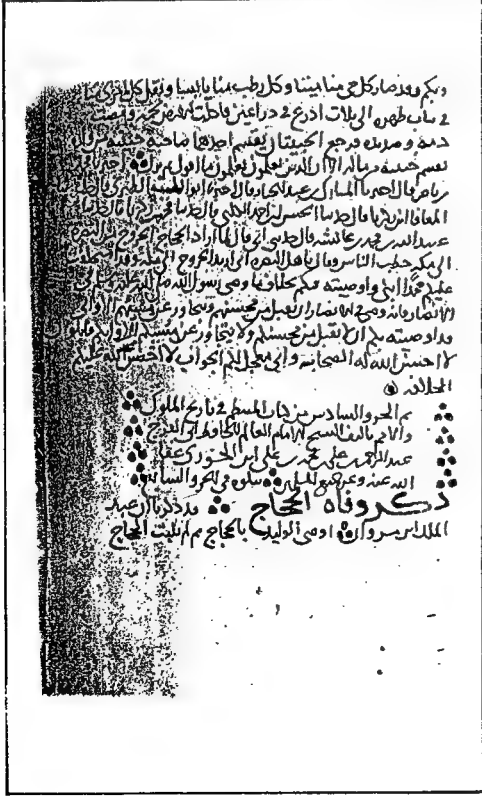 وبكم وقد صار كل حي منا ميتا وكل رطب منا يابسا ونقل كل امرئ منا
في ثياب طهره الى ثلاث اذرع في ذراعين فاكلت الارض لحمه ومصت
دمه وصديده ورجع الحبيبان يقتسم احدهما صاحبه حبيبه من
يقسم حبيبه من ماله الا ان الذين يعلمون يعلمون ما اقول
قال اخبرنا المبارك بن عبد الجبار قال اخبرنا ابو
المعافا بن زكريا قال حدثنا الحسن بن احمد الكلبي قال حدثنا محمد بن زكريا قال حدثنا
عبيد الله بن محمد بن عائشة قال حدثني ابي قال لما اراد الحجاج الخروج من البصرة
الى مكه خطب الناس وقال يا اهل البصره اني اريد الخروج الى مكه وقد استخلفت
عليكم محمدا ابني واوصيته فيكم بخلاف ما وصى رسول الله صلى الله عليه وسلم في
الانصار فانه وصى في الانصار ان يقبل من محسنهم ويتجاوز عن مسيئهم الا واني
قد اوصيته بكم ان لا يقبل من محسنكم ولا يتجاوز عن مسيئكم الا وانكم قائلون
لا احسن الله له الصحابه واني معجل لكم الجواب لا احسن الله عليكم
الخلافه
تم الجزو السادس من كتاب المنتظم في تاريخ الملوك
والامم تاليف الشيخ الامام العالم الحافظ ابو الفرج
عبد الرحمن بن علي بن محمد بن علي ابن الجوزي عفا
الله عنه وعن جميع المسلمين يتلوه في الجزو السابع
ذكر وفاه الحجاج قد ذكرنا ان عبد
الملك ابن مروان اوصى الوليد بالحجاج ثم لم يلبث الحجاج